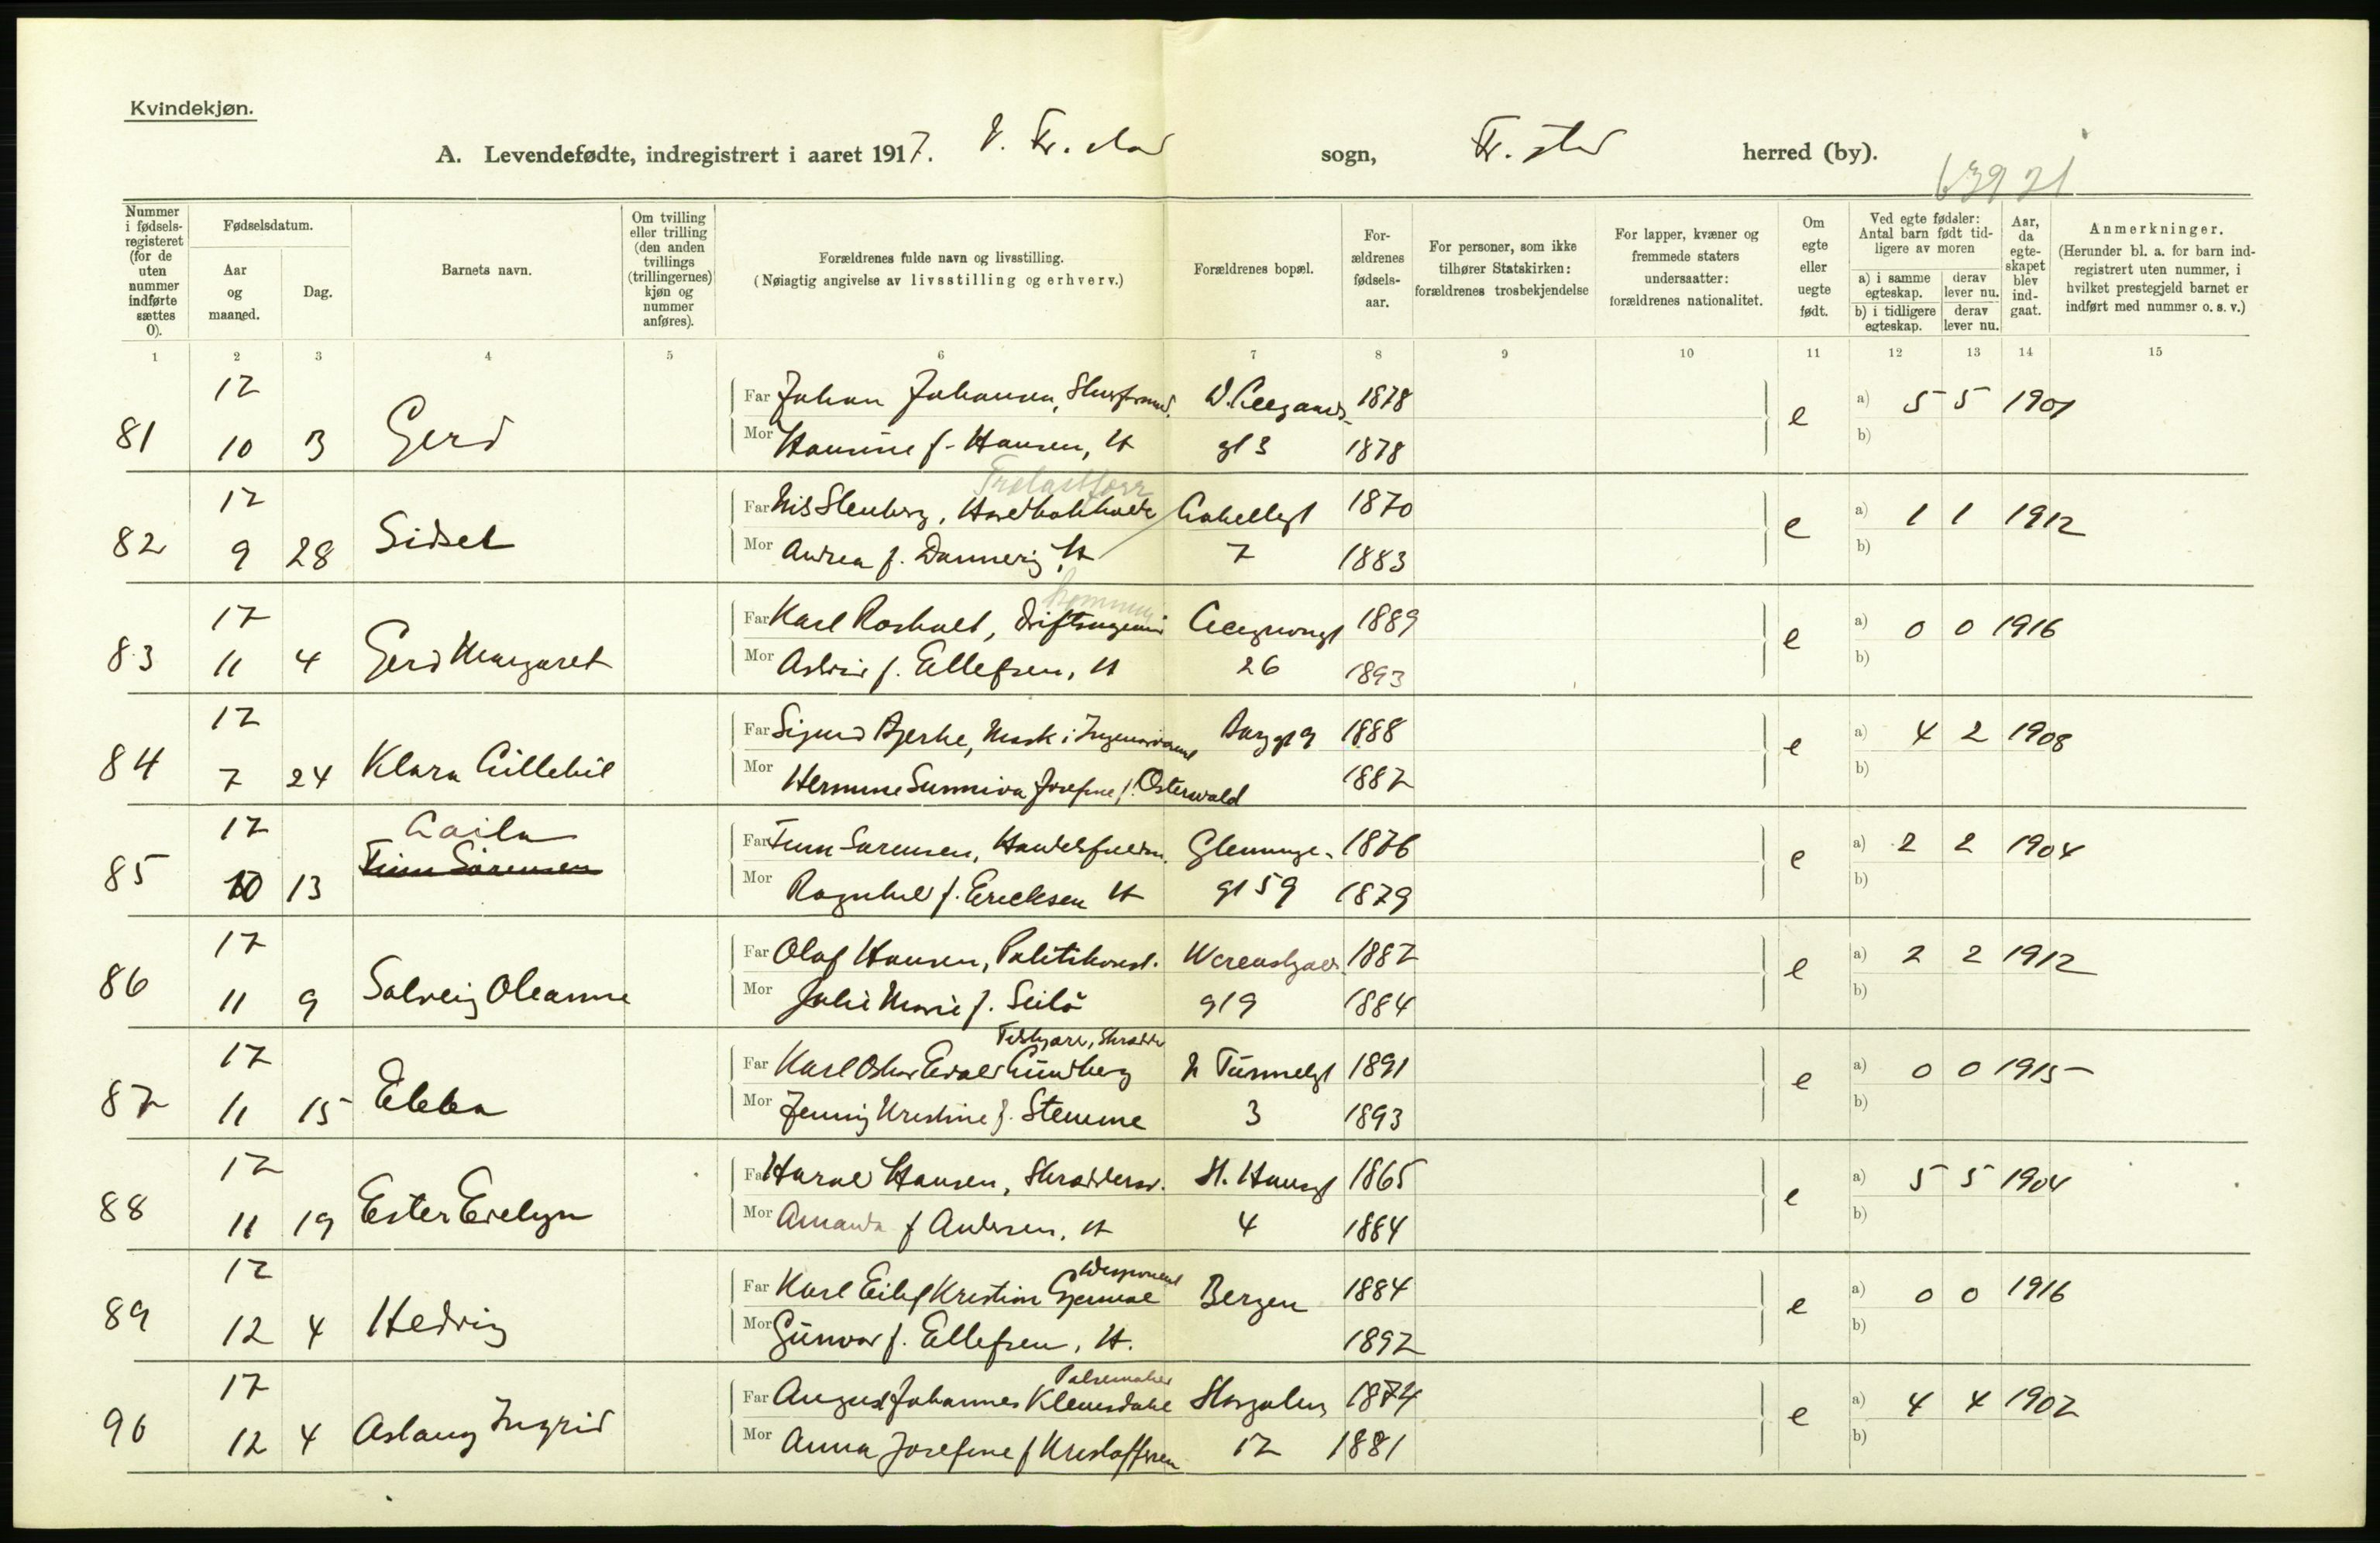 Kvindekjøn.
A. Levendefødte, indregistrert i aaret 1917. V. Fr.stad sogn, Fr.stad herred (by).
Nummer i fødsels-registeret (for de uten nummer indførte sættes 0).
Fødselsdatum.
Aar og maaned.
Dag.
Barnets navn.
Om tvilling eller trilling (den anden tvillings (trillingernes) kjøn og nummer anføres).
Forældrenes fulde navn og livsstilling.
(Nøiagtig angivelse av livsstilling og erhverv.)
Forældrenes bopæl.
For-ældrenes fødsels-aar.
For personer, som ikke tilhører Statskirken: forældrenes trosbekjendelse
For lapper, kvæner og fremmede staters undersaatter: forældrenes nationalitet.
Om egte eller uegte født.
Ved egte fødsler: Antal barn født tid-ligere av moren
a) i samme egteskap.
derav lever nu.
b) i tidligere egteskap.
derav lever nu.
Aar, da egte-skapet blev ind-gaat.
Anmerkninger.
(Herunder bl. a. for barn ind-registrert uten nummer, i hvilket prestegjeld barnet er indført med nummer o. s. v.)
1 2 3 4 5 6 7 8 9 10 11 12 13 14 15
17 Far Johan Johansen, 1878 a) 5 5 1901
81 10 3 Gerd Mor Hansine f. Hansen, H gt 3 1878 e b)
Trelastforr
17 Far Nils Stenberg, 1870 a) 1 1 1912
82 9 28 Sidsel Mor Andrea f. Dannevig, H 7 1883 e b)
17 Far Karl Rosholt, Driftsingeniør 1889 a) 0 0 1916
83 11 4 Gerd Margaret Mor Astrid f. Ellefsen, H 26 1893 e b)
17 Far Sigurd Bjerke, Mask i 1888 a) 4 2 1908
84 7 24 Klara Lillebil Mor Hermine Sunniva Josefine f. Osterwald 1887 e b)
17 Laila Far Finn Sørensen, Handelsfuldm. Glemmige- 1876 a) 2 2 1904
85 10 13 Finn Sørensen Mor Ragnhild f. Ericksen H gt 59 1879 e b)
17 Far Olaf Hansen, Politikonst. Werenskjolds 1887 a) 2 2 1912
86 11 9 Solveig Oleanne Mor Julie Marie f. Seilö gt 9 1884 e b)
17 Far Karl Oskar Evald Lundberg N Tunnelgt 1891 a) 0 0 1915
87 11 15 Ebba Mor Jenny Kristine f. Stemme 3 1893 e b)
17 Far Harald Hansen, Skræddersv. St. Hansgt 1865 a) 5 5 1904
88 11 19 Ester Evelyn Mor Amanda f Andersen, H 4 1884 e b)
Disponent
17 Far Karl Eilif Kristian Bergen 1884 a) 0 0 1916
89 12 4 Hedvig Mor Gunvor f. Ellefsen, H. 1892 e b)
Pølsemaker
17 Far August Johannes Klemsdahl 1874 a) 4 4 1902
90 12 4 Aslaug Ingrid Mor Anna Josefine f Kristoffersen 17 1881 e b)